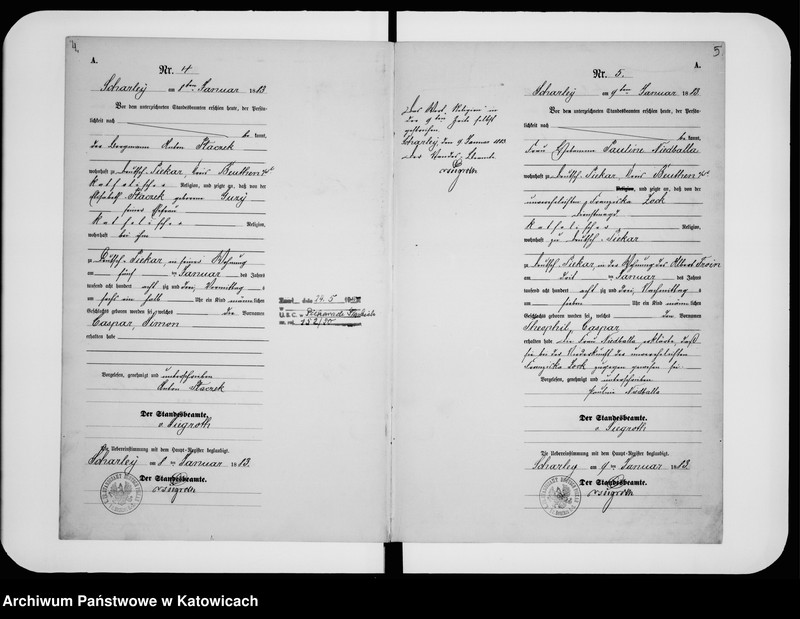 4.
A.
Nr. 4
Scharley am 8ten Januar 1883
Vor dem unterzeichneten Standesbeamten erschien heute, der Persön-
lichkeit nach
be kannt,
der Bergmann Anton Stäczek
wohnhaft zu Deutsch Piekar, Kreis Beuthen
Katholischer Religion, und zeigte an, daß von der
Stäczek geborene
seiner Ehefrau
Katholischer Religion,
wohnhaft bei ihm
zu Deutsch Piekar, in seiner Wohnung
am fünften Januar des Jahres
tausend acht hundert acht zig und drei, Vormittag s
um sechs ein halb Uhr ein Kind männlichen
Geschlechts geboren worden sei, welches den Vornamen
Caspar, Simon
erhalten habe
Vorgelesen, genehmigt und unterschrieben
Anton Stäczek
Der Standesbeamte.
v. Siegroth
Die Uebereinstimmung mit dem Haupt-Register beglaubigt.
Scharley am 8ten Januar 1883.
Der Standesbeamte.
v. Siegroth
U.S.C.
Das Wort „Religion" in
der 9ten Zeile
gestrichen.
Scharley, den 9 Januar 1883
Der Standesbeamte
v. Siegroth
5
A.
Nr. 5.
Scharley am 9ten Januar 1883.
Vor dem unterzeichneten Standesbeamten erschien heute, der Persön-
lichkeit nach
be kannt,
Frau Hebamme Pauline Niedballa
wohnhaft zu Deutsch Piekar, Kreis Beuthen
Religion, und zeigte an, daß von der
unverehelichten Franziska Zock
Dienstmagd
Katholischer Religion,
wohnhaft zu Deutsch Piekar
zu Deutsch Piekar, in der Wohnung des Albert
am Januar des Jahres
tausend acht hundert acht zig und drei, Nachmittag s
um sieben Uhr ein Kind männlichen
Geschlechts geboren worden sei, welches den Vornamen
Theophil, Caspar
erhalten habe Die Frau Niedballa erklärte, daß
sie bei der Niederkunft der unverehelichten
Franziska Zock zugegen gewesen sei
Vorgelesen, genehmigt und unterschrieben
Pauline Niedballa
Der Standesbeamte.
v. Siegroth
Die Uebereinstimmung mit dem Haupt-Register beglaubigt.
Scharley am 9ten Januar 1883.
Der Standesbeamte.
v. Siegroth
Archiwum Państwowe w Katowicach